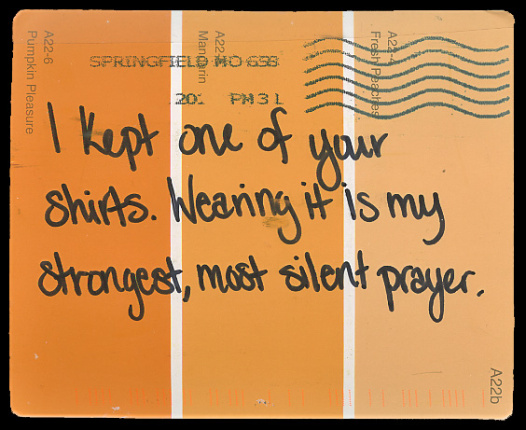 A22-6
Pumpkin Pleasure
Mandarin
Fresh Peaches
SPRINGFIELD MO 658
201 PM 3 L
I kept one of your
shirts. Wearing it is my
strongest, most silent prayer.
A22b